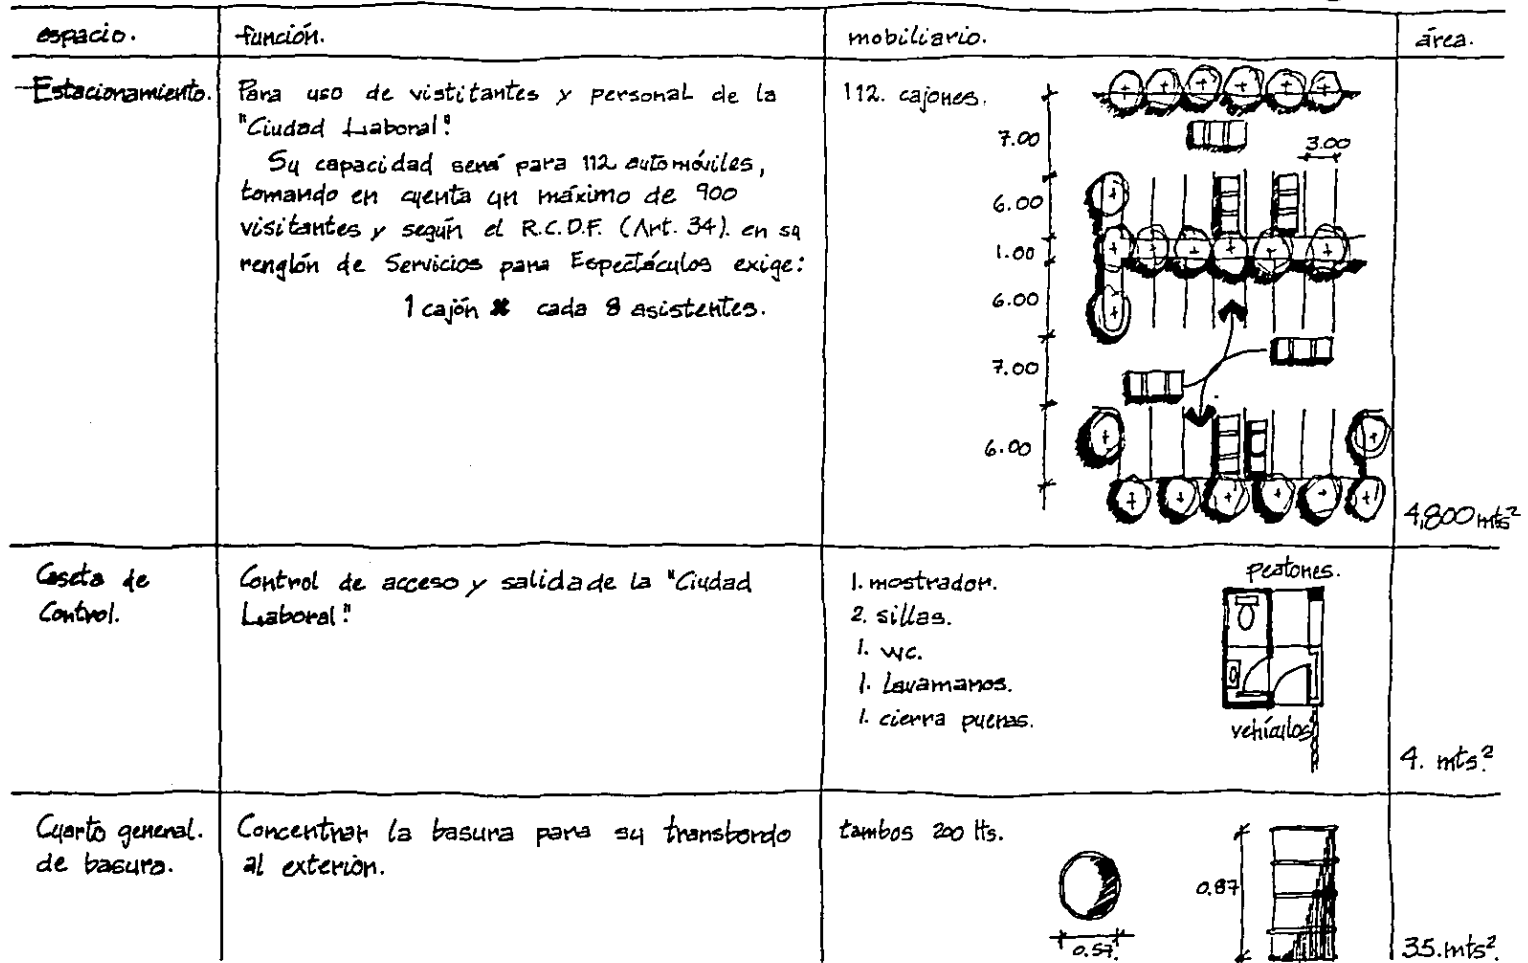 espacio.
función.
mobiliario.
área.
Estacionamiento.
Para uso de vistitantes y personal de la
"Ciudad Laboral".
Su capacidad será para 112 automóviles,
tomando en cuenta un máximo de 900
visitantes y según el R.C.D.F. (Art. 34). en su
renglón de Servicios para Espectáculos exige:
1 cajón x cada 8 asistentes.
112. cajones.
7.00
3.00
6.00
1.00
6.00
7.00
6.00
4,800 mts²
Caseta de
Control.
Control de acceso y salida de la "Ciudad
Laboral".
1. mostrador.
2. sillas.
1. wc.
1. Lavamanos.
1. cierra puertas.
peatones.
vehículos
4. mts.²
Cuarto general.
de basura.
Concentrar la basura para su transbordo
al exterior.
tambos 200 lts.
0.57.
0.87
35.mts².